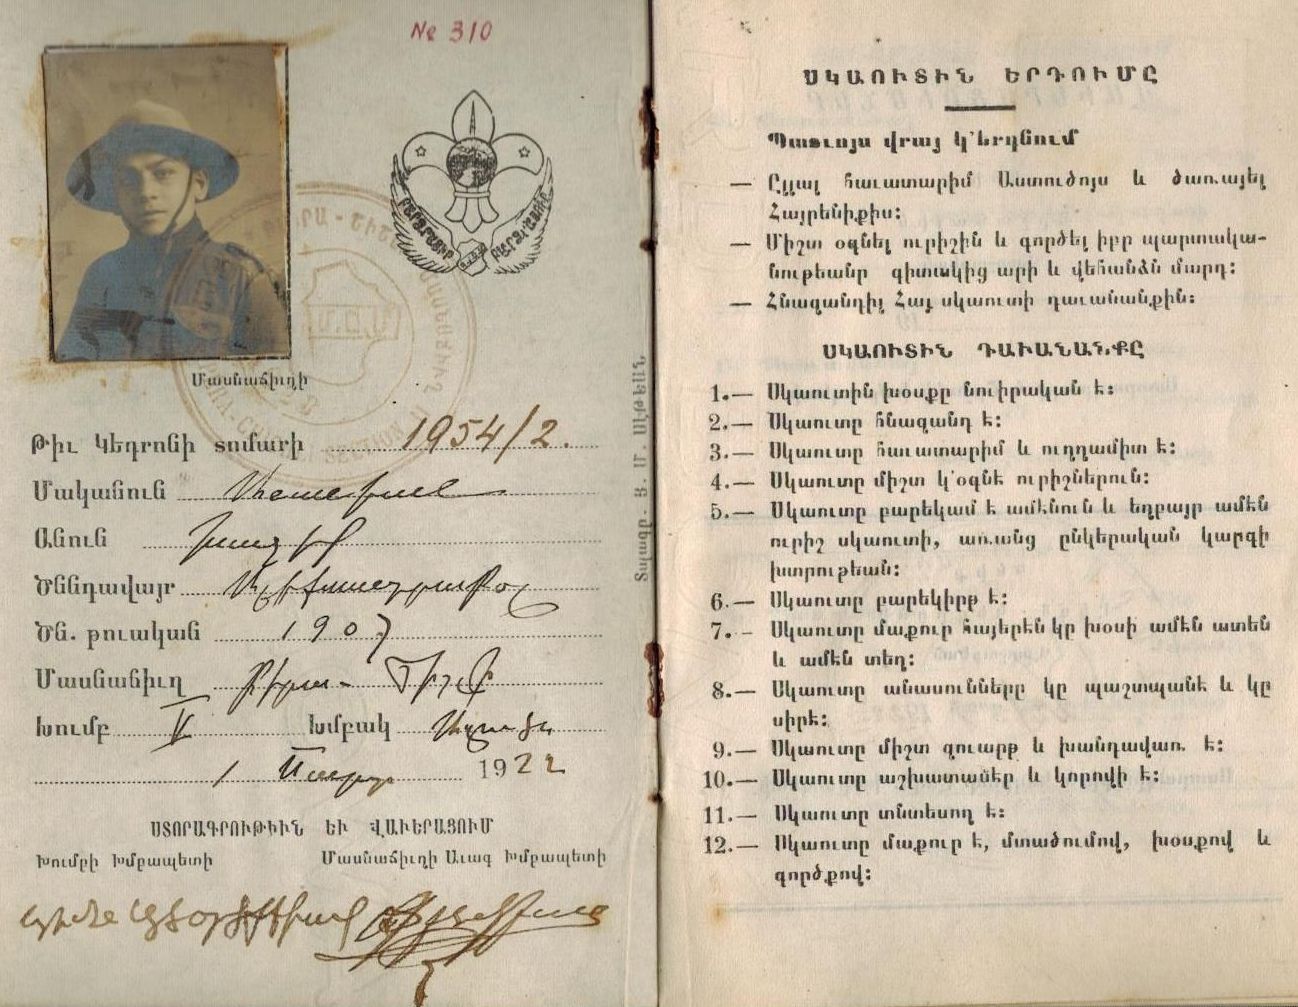 № 310
ԲԱՐՁՐԱՑԻՐ ԲԱՐՁՐԱՑՈՒՐ
Հ.Մ.Ը.Մ.
Մասնաճիւղի
Թիւ Կեդրոնի տոմարի 1954/2.
Մականուն
Անուն
Ծննդավայր
Ծն. թուական 1907
Մասնաճիւղ
Խումբ V Խմբակ
1 Մարտ 1922
ՍՏՈՐԱԳՐՈՒԹԻՒՆ ԵՒ ՎԱՒԵՐԱՑՈՒՄ
Խումբի Խմբապետի Մասնաճիւղի Աւագ Խմբապետի
Տպագր. Յ. Մ.
ՍԿԱՈՒՏԻՆ ԵՐԴՈՒՄԸ
Պատւոյս վրայ կ՚երդնում
— Ըլլալ հաւատարիմ Աստուծոյս և ծառայել
Հայրենիքիս։
— Միշտ օգնել ուրիշին և գործել իբր պարտակա-
նութեանը գիտակից արի և վեհանձն մարդ։
— Հնազանդիլ Հայ սկաուտի դաւանանքին։
ՍԿԱՈՒՏԻՆ ԴԱՒԱՆԱՆՔԸ
1.— Սկաուտին խօսքը նուիրական է։
2.— Սկաուտը հնազանդ է։
3.— Սկաուտը հաւատարիմ և ուղղամիտ է։
4.— Սկաուտը միշտ կ՚օգնէ ուրիշներուն։
5.— Սկաուտը բարեկամ է ամէնուն և եղբայր ամէն
ուրիշ սկաուտի, առանց ընկերական կարգի
խտրութեան։
6.— Սկաուտը բարեկիրթ է։
7.— Սկաուտը մաքուր հայերէն կը խօսի ամէն ատեն
և ամէն տեղ։
8.— Սկաուտը անասունները կը պաշտպանէ և կը
սիրէ։
9.— Սկաուտը միշտ զուարթ և խանդավառ է։
10.— Սկաուտը աշխատասէր և կորովի է։
11.— Սկաուտը տնտեսող է։
12.— Սկաուտը մաքուր է, մտածումով, խօսքով և
գործքով։